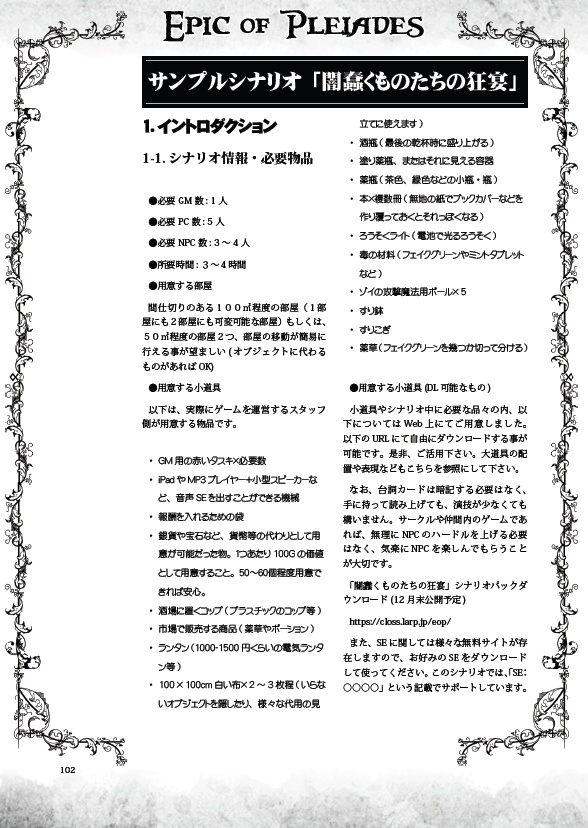 EPIC OF PLEIADES
サンプルシナリオ「闇蠢くものたちの狂宴」
1. イントロダクション
1-1. シナリオ情報・必要物品
●必要 GM 数 : 1 人
●必要 PC 数 : 5 人
●必要 NPC 数 : 3 ～ 4 人
●所要時間 : 3 ～ 4 時間
●用意する部屋
間仕切りのある１００㎡程度の部屋（１部
屋にも２部屋にも可変可能な部屋）もしくは、
５０㎡程度の部屋２つ、部屋の移動が簡易に
行える事が望ましい ( オブジェクトに代わる
ものがあれば OK)
●用意する小道具
以下は、実際にゲームを運営するスタッフ
側が用意する物品です。
・ GM 用の赤いタスキ×必要数
・ iPad や MP3 プレイヤー＋小型スピーカーな
ど、音声 SE を出すことができる機械
・ 報酬を入れるための袋
・ 銀貨や宝石など、貨幣等の代わりとして用
意が可能だった物。1つあたり 100G の価値
として用意すること。50～60個程度用意で
きれば安心。
・ 酒場に置くコップ（プラスチックのコップ等）
・ 市場で販売する商品（薬草やポーション）
・ ランタン（1000-1500 円くらいの電気ランタ
ン等）
・ 100 × 100cm 白い布× 2 ～ 3 枚程（いらな
いオブジェクトを隠したり、様々な代用の見
立てに使えます）
・ 酒瓶（最後の乾杯時に盛り上がる）
・ 塗り薬瓶、またはそれに見える容器
・ 薬瓶（茶色、緑色などの小瓶・瓶）
・ 本×複数冊（無地の紙でブックカバーなどを
作り覆っておくとそれっぽくなる）
・ ろうそくライト（電池で光るろうそく）
・ 毒の材料（フェイクグリーンやミントタブレット
など）
・ ゾイの攻撃魔法用ボール×５
・ すり鉢
・ すりこぎ
・ 薬草（フェイクグリーンを幾つか切って分ける）
●用意する小道具 (DL 可能なもの )
小道具やシナリオ中に必要な品々の内、以
下については Web 上にてご用意しました。
以下の URL にて自由にダウンロードする事が
可能です。是非、ご活用下さい。大道具の配
置や表現などもこちらを参照にして下さい。
なお、台詞カードは暗記する必要はなく、
手に持って読み上げても、演技が少なくても
構いません。サークルや仲間内のゲームであ
れば、無理に NPC のハードルを上げる必要
はなく、気楽に NPC を楽しんでもらうこと
が大切です。
「闇蠢くものたちの狂宴」シナリオパックダ
ウンロード (12 月末公開予定 )
https://closs.larp.jp/eop/
また、SE に関しては様々な無料サイトが存
在しますので、お好みの SE をダウンロード
して使ってください。このシナリオでは、「SE：
○○○○」という記載でサポートしています。
102